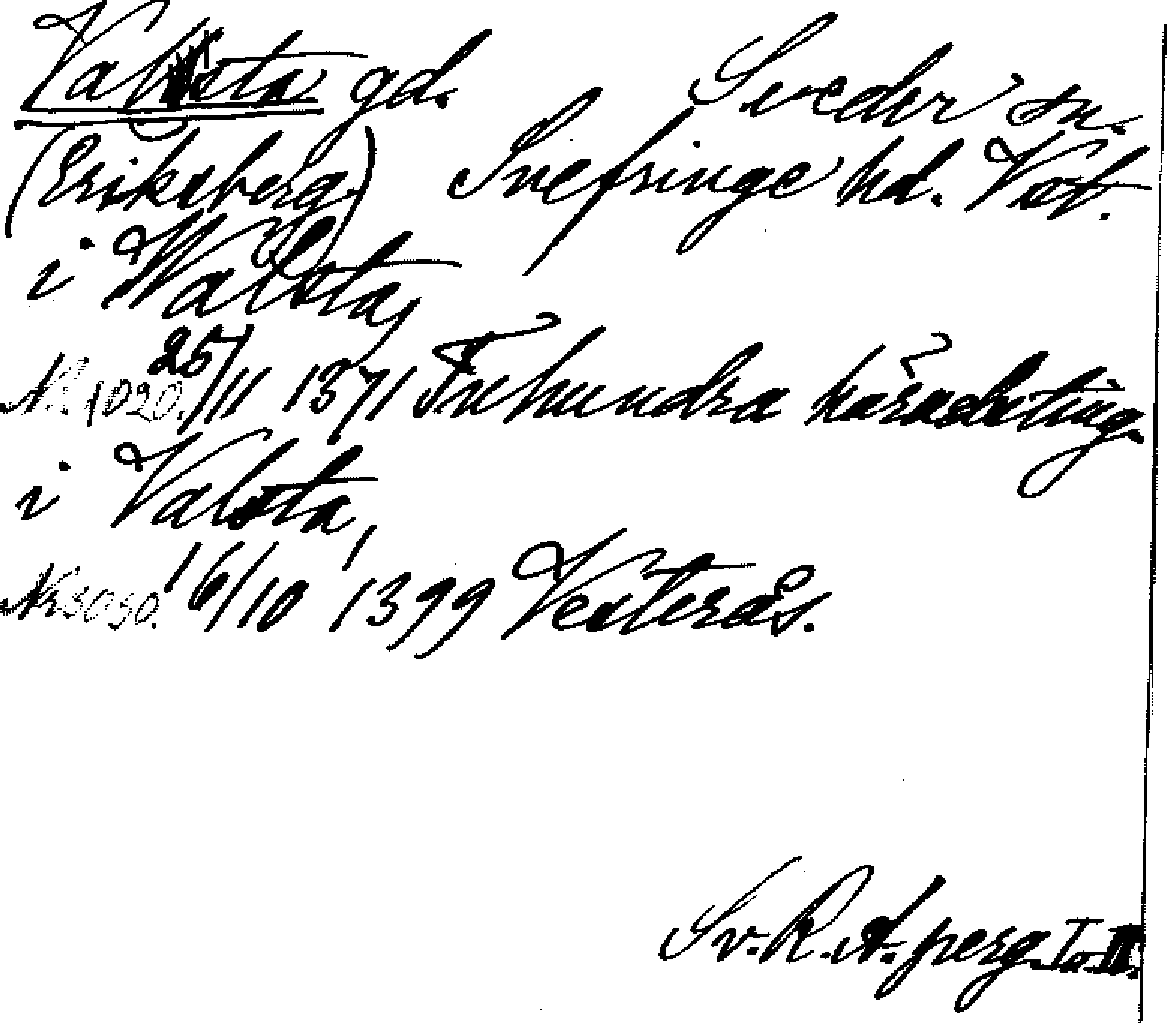 Valsta gd. Sveder sn.
(Eriksberg) Snefringe hd. Vst.
i Walsta,
Nr 1020. 25/11 1371 Tuhundra häradsting.
i Valsta,
Nr 3030. 16/10 1399 Vesterås.
Sv. R. A. perg. I o. II.